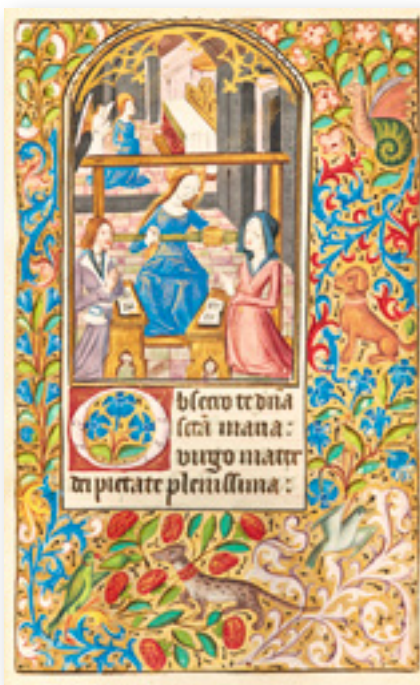 Obsecro te dn̄a
sc̄tā maria:
virgo mater
dei pietate plenissima: